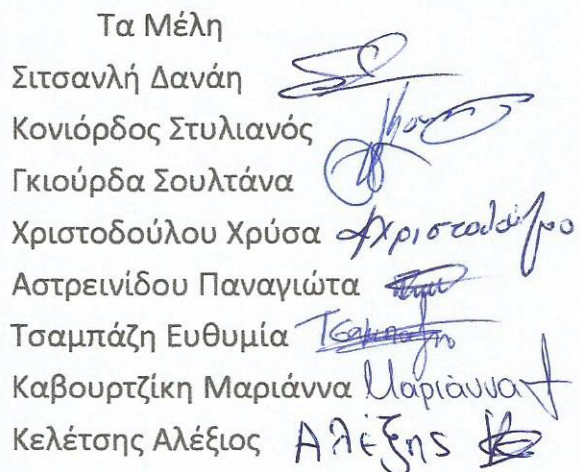 Τα Μέλη
Σιτσανλή Δανάη
Κονιόρδος Στυλιανός
Γκιούρδα Σουλτάνα
Χριστοδούλου Χρύσα
Αστρεινίδου Παναγιώτα
Τσαμπάζη Ευθυμία Τσαμπάζη
Καβουρτζίκη Μαριάννα Μαριάννα
Κελέτσης Αλέξιος Αλέξης